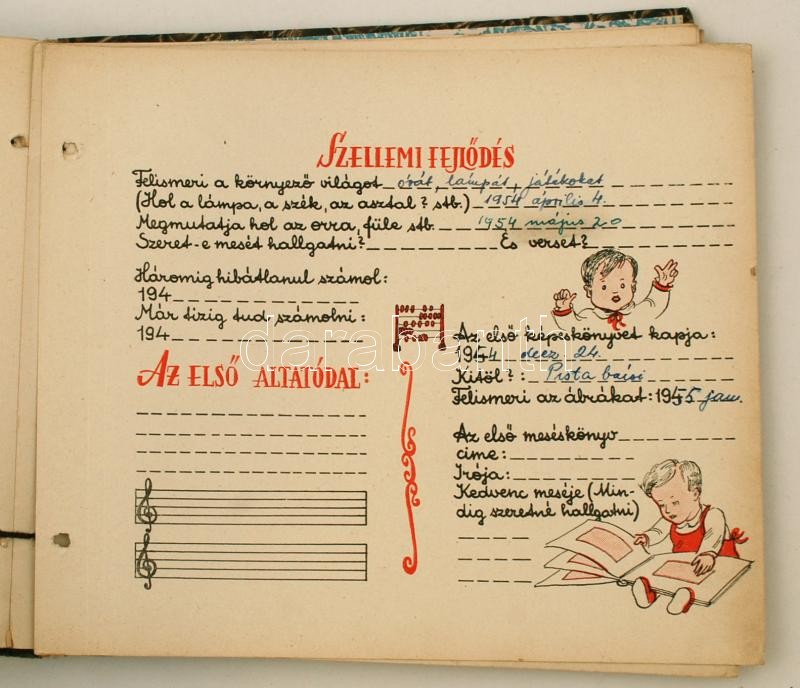 SZELLEMI FEJLŐDÉS
Felismeri a környező világot órát, lámpát, játékokat
(Hol a lámpa, a szék, az asztal? stb.) 1954 április 4.
Megmutatja hol az orra, füle stb. 1954 május 20
Szeret-e mesét hallgatni? És verset?
Háromig hibátlanul számol:
194
Már tizig tud számolni:
194
AZ ELSŐ ALTATÓDAL:
Az első képeskönyvet kapja:
1954 dec 24.
Kitöl?: Pista bácsi
Felismeri az ábrákat: 1955 jan.
Az első meséskönyv
cime:
Irója:
Kedvenc meséje (Min-
dig szeretné hallgatni)
darabanth